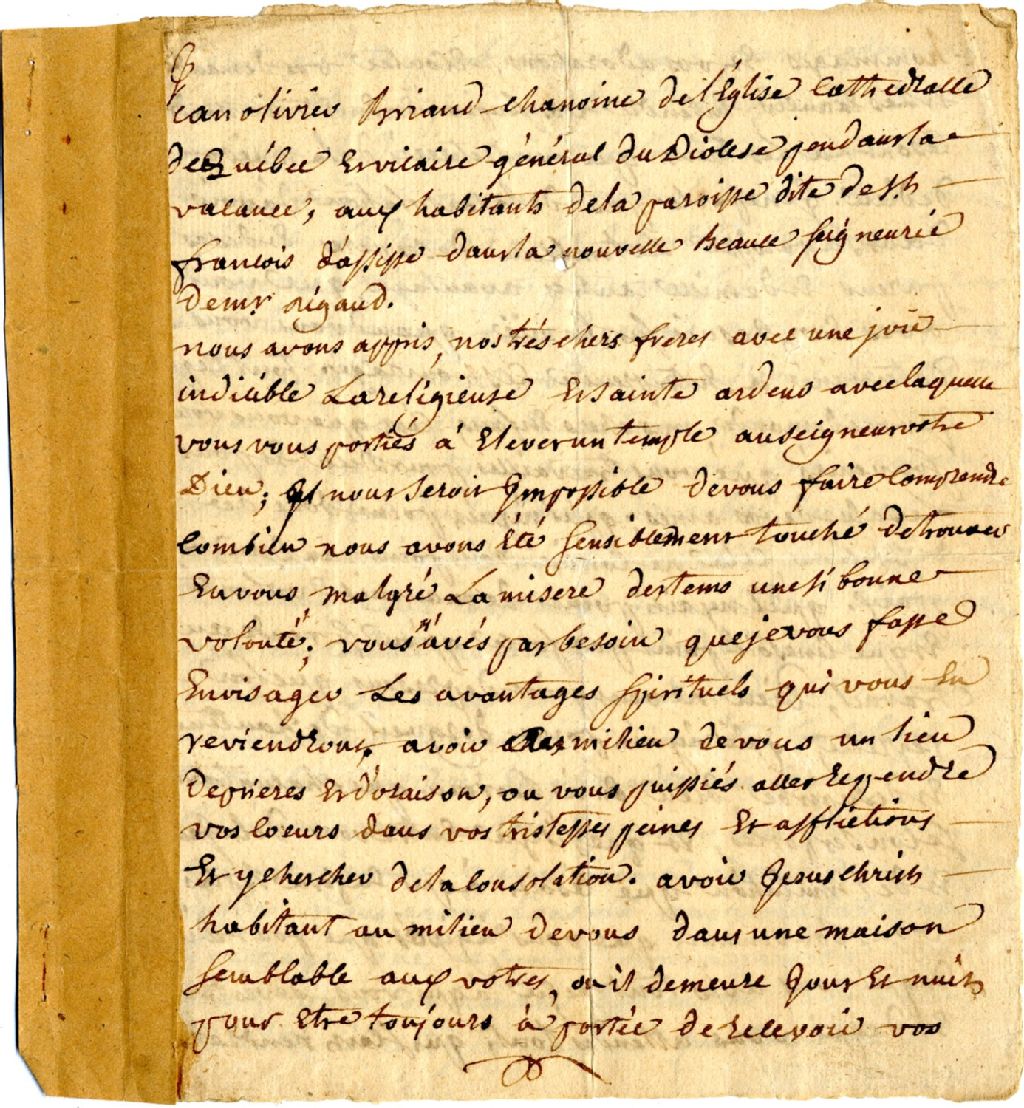 Jean olivier Briand chanoine de l'Eglise Cathedralle
de Québec Et vicaire général du Diocese pendant la
vacance, aux habitants de la paroisse dite de st
francois d'assisse dans la nouvelle Beauce seigneurie
de mr Rigaud.
nous avons appris, nos trés chers freres avec une joie
indicible La religieuse Et sainte ardeur avec laquelle
vous vous portiés à Elever un temple au seigneur votre
Dieu; il nous seroit Impossible de vous faire comprendre
combien nous avons Eté sensiblement touché de trouver
En vous malgré La misere des tems une si bonne
volonté; vous n'avés pas besoin que je vous fasse
Envisager Les avantages spirituels qui vous En
reviendront, avoir au milieu de vous un lieu
de prieres Et d'oraison, ou vous puissiés aller Rependre
vos coeurs dans vos tristesses peines Et afflictions
Et y chercher de la consolation. avoir Jesus christ
habitant au milieu de vous dans une maison
semblable aux votres, ou il demeure Jour Et nuit
pour Etre toujours à portée de recevoir vos